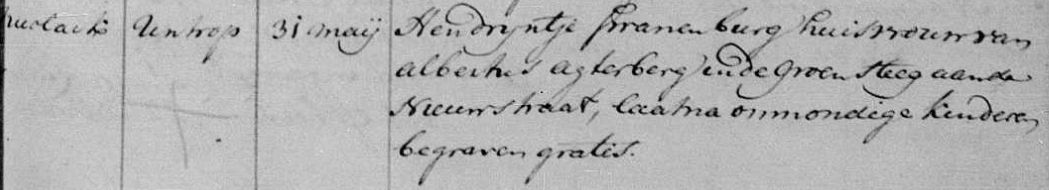 Untrop 31 maij Hendryntje Kranenburg huisvrouw van
albertus agterberg in de Groen steeg aan de
Nieuwstraat, laat na onmondige kinderen
begraven gratis.